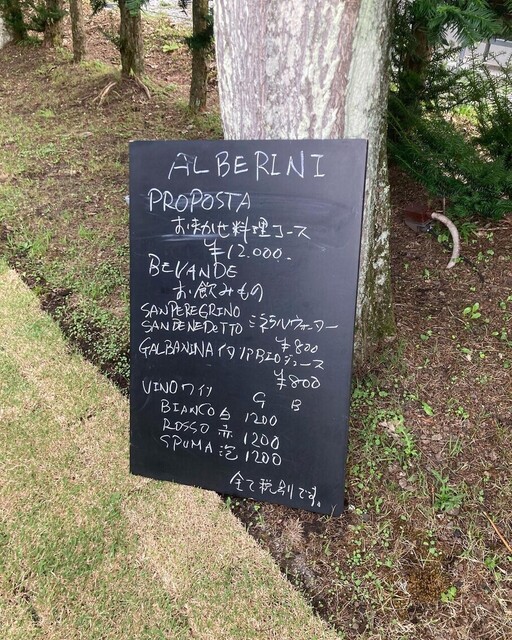 ALBERINI
PROPOSTA
おまかせ料理コース
¥12.000.
BEVANDE
お飲みもの
SANPEREGRINO
SANDENEDETTO ミネラルウォーター
¥800
GALBANINA イタリアBIOジュース
¥800
VINO ワイン G B
BIANCO 白 1200
ROSSO 赤 1200
SPUMA 泡 1200
全て税別です。